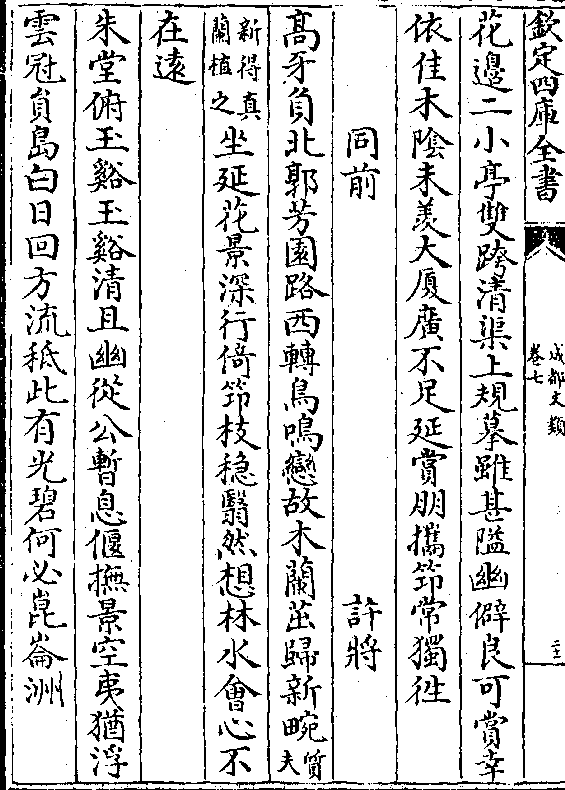 欽定四庫全書
成都文類
卷七
二十三
花邊二小亭雙跨清渠上規摹雖甚隘幽僻良可賞幸
依佳木陰未羡大厦廣不足延賞朋攜笻常獨往
同前 許將
髙牙負北郭芳園路西轉鳥鳴戀故木蘭茁歸新畹質夫
新得真蘭植之坐延花景深行倚笻枝穏翳然想林水會心不
在遠
朱堂俯玉谿玉谿清且幽從公暫息偃撫景空夷猶浮
雲冠負島白日回方流秪此有光碧何必崑崙洲